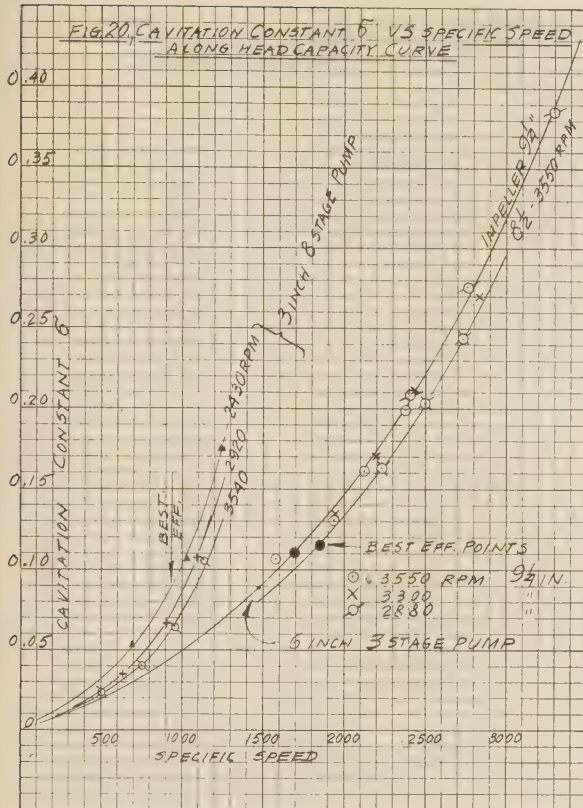 FIG. 20, CAVITATION CONSTANT б VS SPECIFIC SPEED
ALONG HEAD CAPACITY CURVE
0.40
0.35
0.30
0.25
0.20
0.15
0.10
0.05
0
CAVITATION CONSTANT б
3 INCH 8 STAGE PUMP
2430 RPM
2920
3540
BEST
EFF.
IMPELLER 9¼"
8½ - 3550 RPM
BEST EFF. POINTS
3550 RPM 9¼ IN.
3300 "
2880 "
6 INCH 3 STAGE PUMP
500 1000 1500 2000 2500 3000
SPECIFIC SPEED